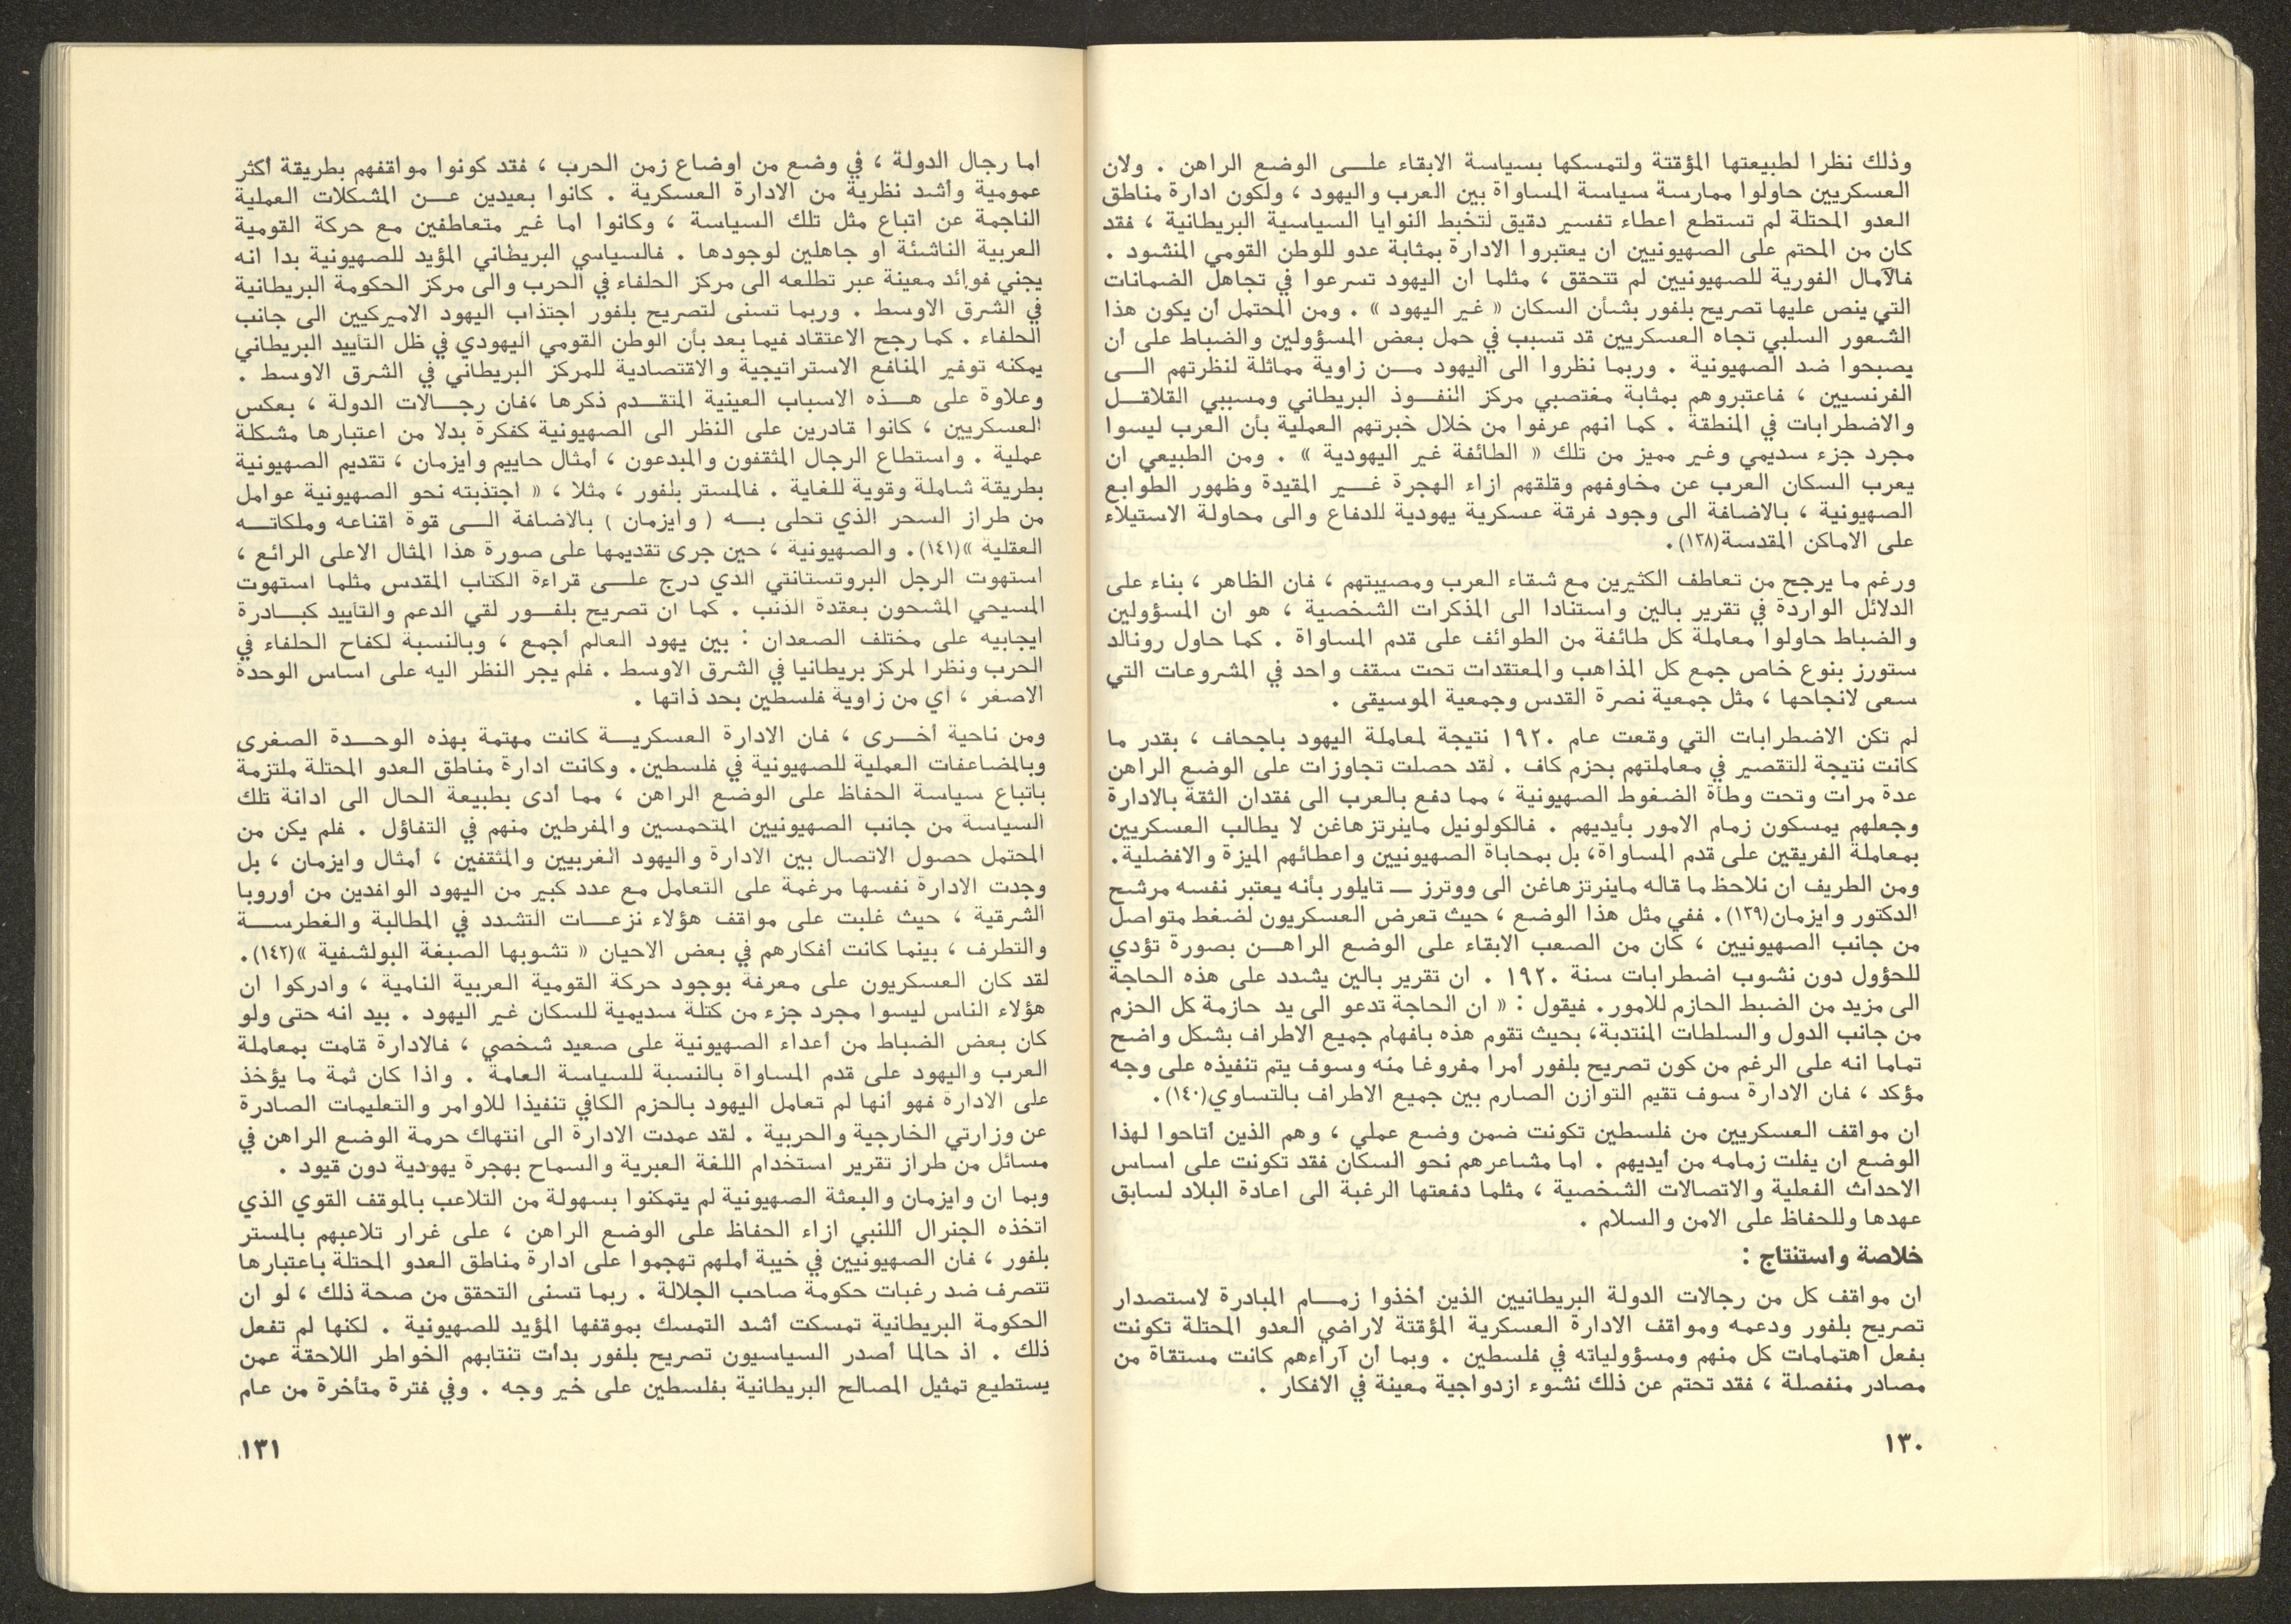 وذلك نظرا لطبيعتها المؤقتة ولتمسكها بسياسة الابقاء علـــى الوضع الراهن . ولان
العسكريين حاولوا ممارسة سياسة المساواة بين العرب واليهود ، ولكون ادارة مناطق
العدو المحتلة لم تستطع اعطاء تفسير دقيق لتخبط النوايا السياسية البريطانية ، فقد
كان من المحتم على الصهيونيين ان يعتبروا الادارة بمثابة عدو للوطن القومي المنشود .
فالآمال الفورية للصهيونيين لم تتحقق ، مثلما ان اليهود تسرعوا في تجاهل الضمانات
التي ينص عليها تصريح بلفور بشأن السكان « غير اليهود » . ومن المحتمل أن يكون هذا
الشعور السلبي تجاه العسكريين قد تسبب في حمل بعض المسؤولين والضباط على أن
يصبحوا ضد الصهيونية . وربما نظروا الى اليهود مـــن زاوية مماثلة لنظرتهم الـــى
الفرنسيين ، فاعتبروهم بمثابة مغتصبي مركز النفـــوذ البريطاني ومسببي القلاقـــل
والاضطرابات في المنطقة . كما انهم عرفوا من خلال خبرتهم العملية بأن العرب ليسوا
مجرد جزء سديمي وغير مميز من تلك « الطائفة غير اليهودية » . ومن الطبيعي ان
يعرب السكان العرب عن مخاوفهم وقلقهم ازاء الهجرة غـــير المقيدة وظهور الطوابع
الصهيونية ، بالاضافة الى وجود فرقة عسكرية يهودية للدفاع والى محاولة الاستيلاء
على الاماكن المقدسة(١٣٨).
ورغم ما يرجح من تعاطف الكثيرين مع شقاء العرب ومصيبتهم ، فان الظاهر ، بناء على
الدلائل الواردة في تقرير بالين واستنادا الى المذكرات الشخصية ، هو ان المسؤولين
والضباط حاولوا معاملة كل طائفة من الطوائف على قدم المساواة . كما حاول رونالد
ستورز بنوع خاص جمع كل المذاهب والمعتقدات تحت سقف واحد في المشروعات التي
سعى لانجاحها ، مثل جمعية نصرة القدس وجمعية الموسيقى .
لم تكن الاضطرابات التي وقعت عام ١٩٢٠ نتيجة لمعاملة اليهود باجحاف ، بقدر ما
كانت نتيجة للتقصير في معاملتهم بحزم كاف . لقد حصلت تجاوزات على الوضع الراهن
عدة مرات وتحت وطأة الضغوط الصهيونية ، مما دفع بالعرب الى فقدان الثقة بالادارة
وجعلهم يمسكون زمام الامور بأيديهم . فالكولونيل ماينرتزهاغن لا يطالب العسكريين
بمعاملة الفريقين على قدم المساواة، بل بمحاباة الصهيونيين واعطائهم الميزة والافضلية.
ومن الطريف ان نلاحظ ما قاله ماينرتزهاغن الى ووترز — تايلور بأنه يعتبر نفسه مرشح
الدكتور وايزمان(١٣٩). ففي مثل هذا الوضع ، حيث تعرض العسكريون لضغط متواصل
من جانب الصهيونيين ، كان من الصعب الابقاء على الوضع الراهـــن بصورة تؤدي
للحؤول دون نشوب اضطرابات سنة ١٩٢٠ . ان تقرير بالين يشدد على هذه الحاجة
الى مزيد من الضبط الحازم للامور. فيقول : « ان الحاجة تدعو الى يد حازمة كل الحزم
من جانب الدول والسلطات المنتدبة، بحيث تقوم هذه بافهام جميع الاطراف بشكل واضح
تماما انه على الرغم من كون تصريح بلفور أمرا مفروغا منه وسوف يتم تنفيذه على وجه
مؤكد ، فان الادارة سوف تقيم التوازن الصارم بين جميع الاطراف بالتساوي(١٤٠).
ان مواقف العسكريين من فلسطين تكونت ضمن وضع عملي ، وهم الذين أتاحوا لهذا
الوضع ان يفلت زمامه من أيديهم . اما مشاعرهم نحو السكان فقد تكونت على اساس
الاحداث الفعلية والاتصالات الشخصية ، مثلما دفعتها الرغبة الى اعادة البلاد لسابق
عهدها وللحفاظ على الامن والسلام .
خلاصة واستنتاج :
ان مواقف كل من رجالات الدولة البريطانيين الذين أخذوا زمـــام المبادرة لاستصدار
تصريح بلفور ودعمه ومواقف الادارة العسكرية المؤقتة لاراضي العدو المحتلة تكونت
بفعل اهتمامات كل منهم ومسؤولياته في فلسطين . وبما أن آراءهم كانت مستقاة من
مصادر منفصلة ، فقد تحتم عن ذلك نشوء ازدواجية معينة في الافكار .
١٣٠
اما رجال الدولة ، في وضع من اوضاع زمن الحرب ، فقد كونوا مواقفهم بطريقة أكثر
عمومية وأشد نظرية من الادارة العسكرية . كانوا بعيدين عـــن المشكلات العملية
الناجمة عن اتباع مثل تلك السياسة ، وكانوا اما غير متعاطفين مع حركة القومية
العربية الناشئة او جاهلين لوجودها . فالسياسي البريطاني المؤيد للصهيونية بدا انه
يجني فوائد معينة عبر تطلعه الى مركز الحلفاء في الحرب والى مركز الحكومة البريطانية
في الشرق الاوسط . وربما تسنى لتصريح بلفور اجتذاب اليهود الاميركيين الى جانب
الحلفاء . كما رجح الاعتقاد فيما بعد بأن الوطن القومي اليهودي في ظل التأييد البريطاني
يمكنه توفير المنافع الاستراتيجية والاقتصادية للمركز البريطاني في الشرق الاوسط .
وعلاوة على هـــذه الاسباب العينية المتقـــدم ذكرها ،فان رجـــالات الدولة ، بعكس
العسكريين ، كانوا قادرين على النظر الى الصهيونية كفكرة بدلا من اعتبارها مشكلة
عملية . واستطاع الرجال المثقفون والمبدعون ، أمثال حاييم وايزمان ، تقديم الصهيونية
بطريقة شاملة وقوية للغاية . فالمستر بلفور ، مثلا ، « اجتذبته نحو الصهيونية عوامل
من طراز السحر الذي تحلى بـــه ( وايزمان ) بالاضافة الـــى قوة اقناعه وملكاتـــه
العقلية »(١٤١). والصهيونية ، حين جرى تقديمها على صورة هذا المثال الاعلى الرائع ،
استهوت الرجل البروتستانتي الذي درج علـــى قراءة الكتاب المقدس مثلما استهوت
المسيحي المشحون بعقدة الذنب . كما ان تصريح بلفـــور لقي الدعم والتأييد كبـــادرة
ايجابيه على مختلف الصعدان : بين يهود العالم أجمع ، وبالنسبة لكفاح الحلفاء في
الحرب ونظرا لمركز بريطانيا في الشرق الاوسط . فلم يجر النظر اليه على اساس الوحدة
الاصغر ، أي من زاوية فلسطين بحد ذاتها .
ومن ناحية أخـــرى ، فان الادارة العسكريـــة كانت مهتمة بهذه الوحـــدة الصغرى
وبالمضاعفات العملية للصهيونية في فلسطين. وكانت ادارة مناطق العدو المحتلة ملتزمة
باتباع سياسة الحفاظ على الوضع الراهن ، مما أدى بطبيعة الحال الى ادانة تلك
السياسة من جانب الصهيونيين المتحمسين والمفرطين منهم في التفاؤل . فلم يكن من
المحتمل حصول الاتصال بين الادارة واليهود الغربيين والمثقفين ، أمثال وايزمان ، بل
وجدت الادارة نفسها مرغمة على التعامل مع عدد كبير من اليهود الوافدين من أوروبا
الشرقية ، حيث غلبت على مواقف هؤلاء نزعـــات التشدد في المطالبة والغطرســـة
والتطرف ، بينما كانت أفكارهم في بعض الاحيان « تشوبها الصبغة البولشفية »(١٤٢).
لقد كان العسكريون على معرفة بوجود حركة القومية العربية النامية ، وادركوا ان
هؤلاء الناس ليسوا مجرد جزء من كتلة سديمية للسكان غير اليهود . بيد انه حتى ولو
كان بعض الضباط من أعداء الصهيونية على صعيد شخصي ، فالادارة قامت بمعاملة
العرب واليهود على قدم المساواة بالنسبة للسياسة العامة . واذا كان ثمة ما يؤخذ
على الادارة فهو أنها لم تعامل اليهود بالحزم الكافي تنفيذا للاوامر والتعليمات الصادرة
عن وزارتي الخارجية والحربية . لقد عمدت الادارة الى انتهاك حرمة الوضع الراهن في
مسائل من طراز تقرير استخدام اللغة العبرية والسماح بهجرة يهودية دون قيود .
وبما ان وايزمان والبعثة الصهيونية لم يتمكنوا بسهولة من التلاعب بالموقف القوي الذي
اتخذه الجنرال أللنبي ازاء الحفاظ على الوضع الراهن ، على غرار تلاعبهم بالمستر
بلفور ، فان الصهيونيين في خيبة أملهم تهجموا على ادارة مناطق العدو المحتلة باعتبارها
تتصرف ضد رغبات حكومة صاحب الجلالة . ربما تسنى التحقق من صحة ذلك ، لو ان
الحكومة البريطانية تمسكت أشد التمسك بموقفها المؤيد للصهيونية . لكنها لم تفعل
ذلك . اذ حالما أصدر السياسيون تصريح بلفور بدأت تنتابهم الخواطر اللاحقة عمن
يستطيع تمثيل المصالح البريطانية بفلسطين على خير وجه . وفي فترة متأخرة من عام
١٣١